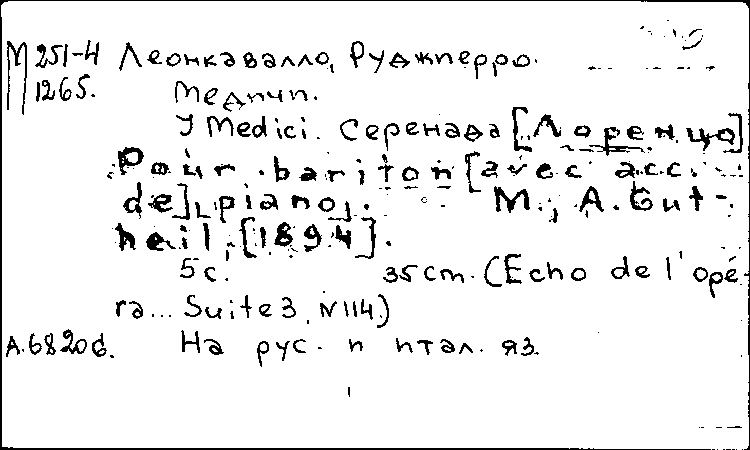 М 251-4 Леонкавалло, Руджиерро.
1265. Медичи.
I Medici. Серенада [Лоренцо]
Pour bariton [avec acc.
de] piano. М., A. Gut-
heil, [1894].
5 с. 35 cm. (Echo de l'opé-
ra... Suite 3, N 114)
А.68206. На рус. и итал. яз.